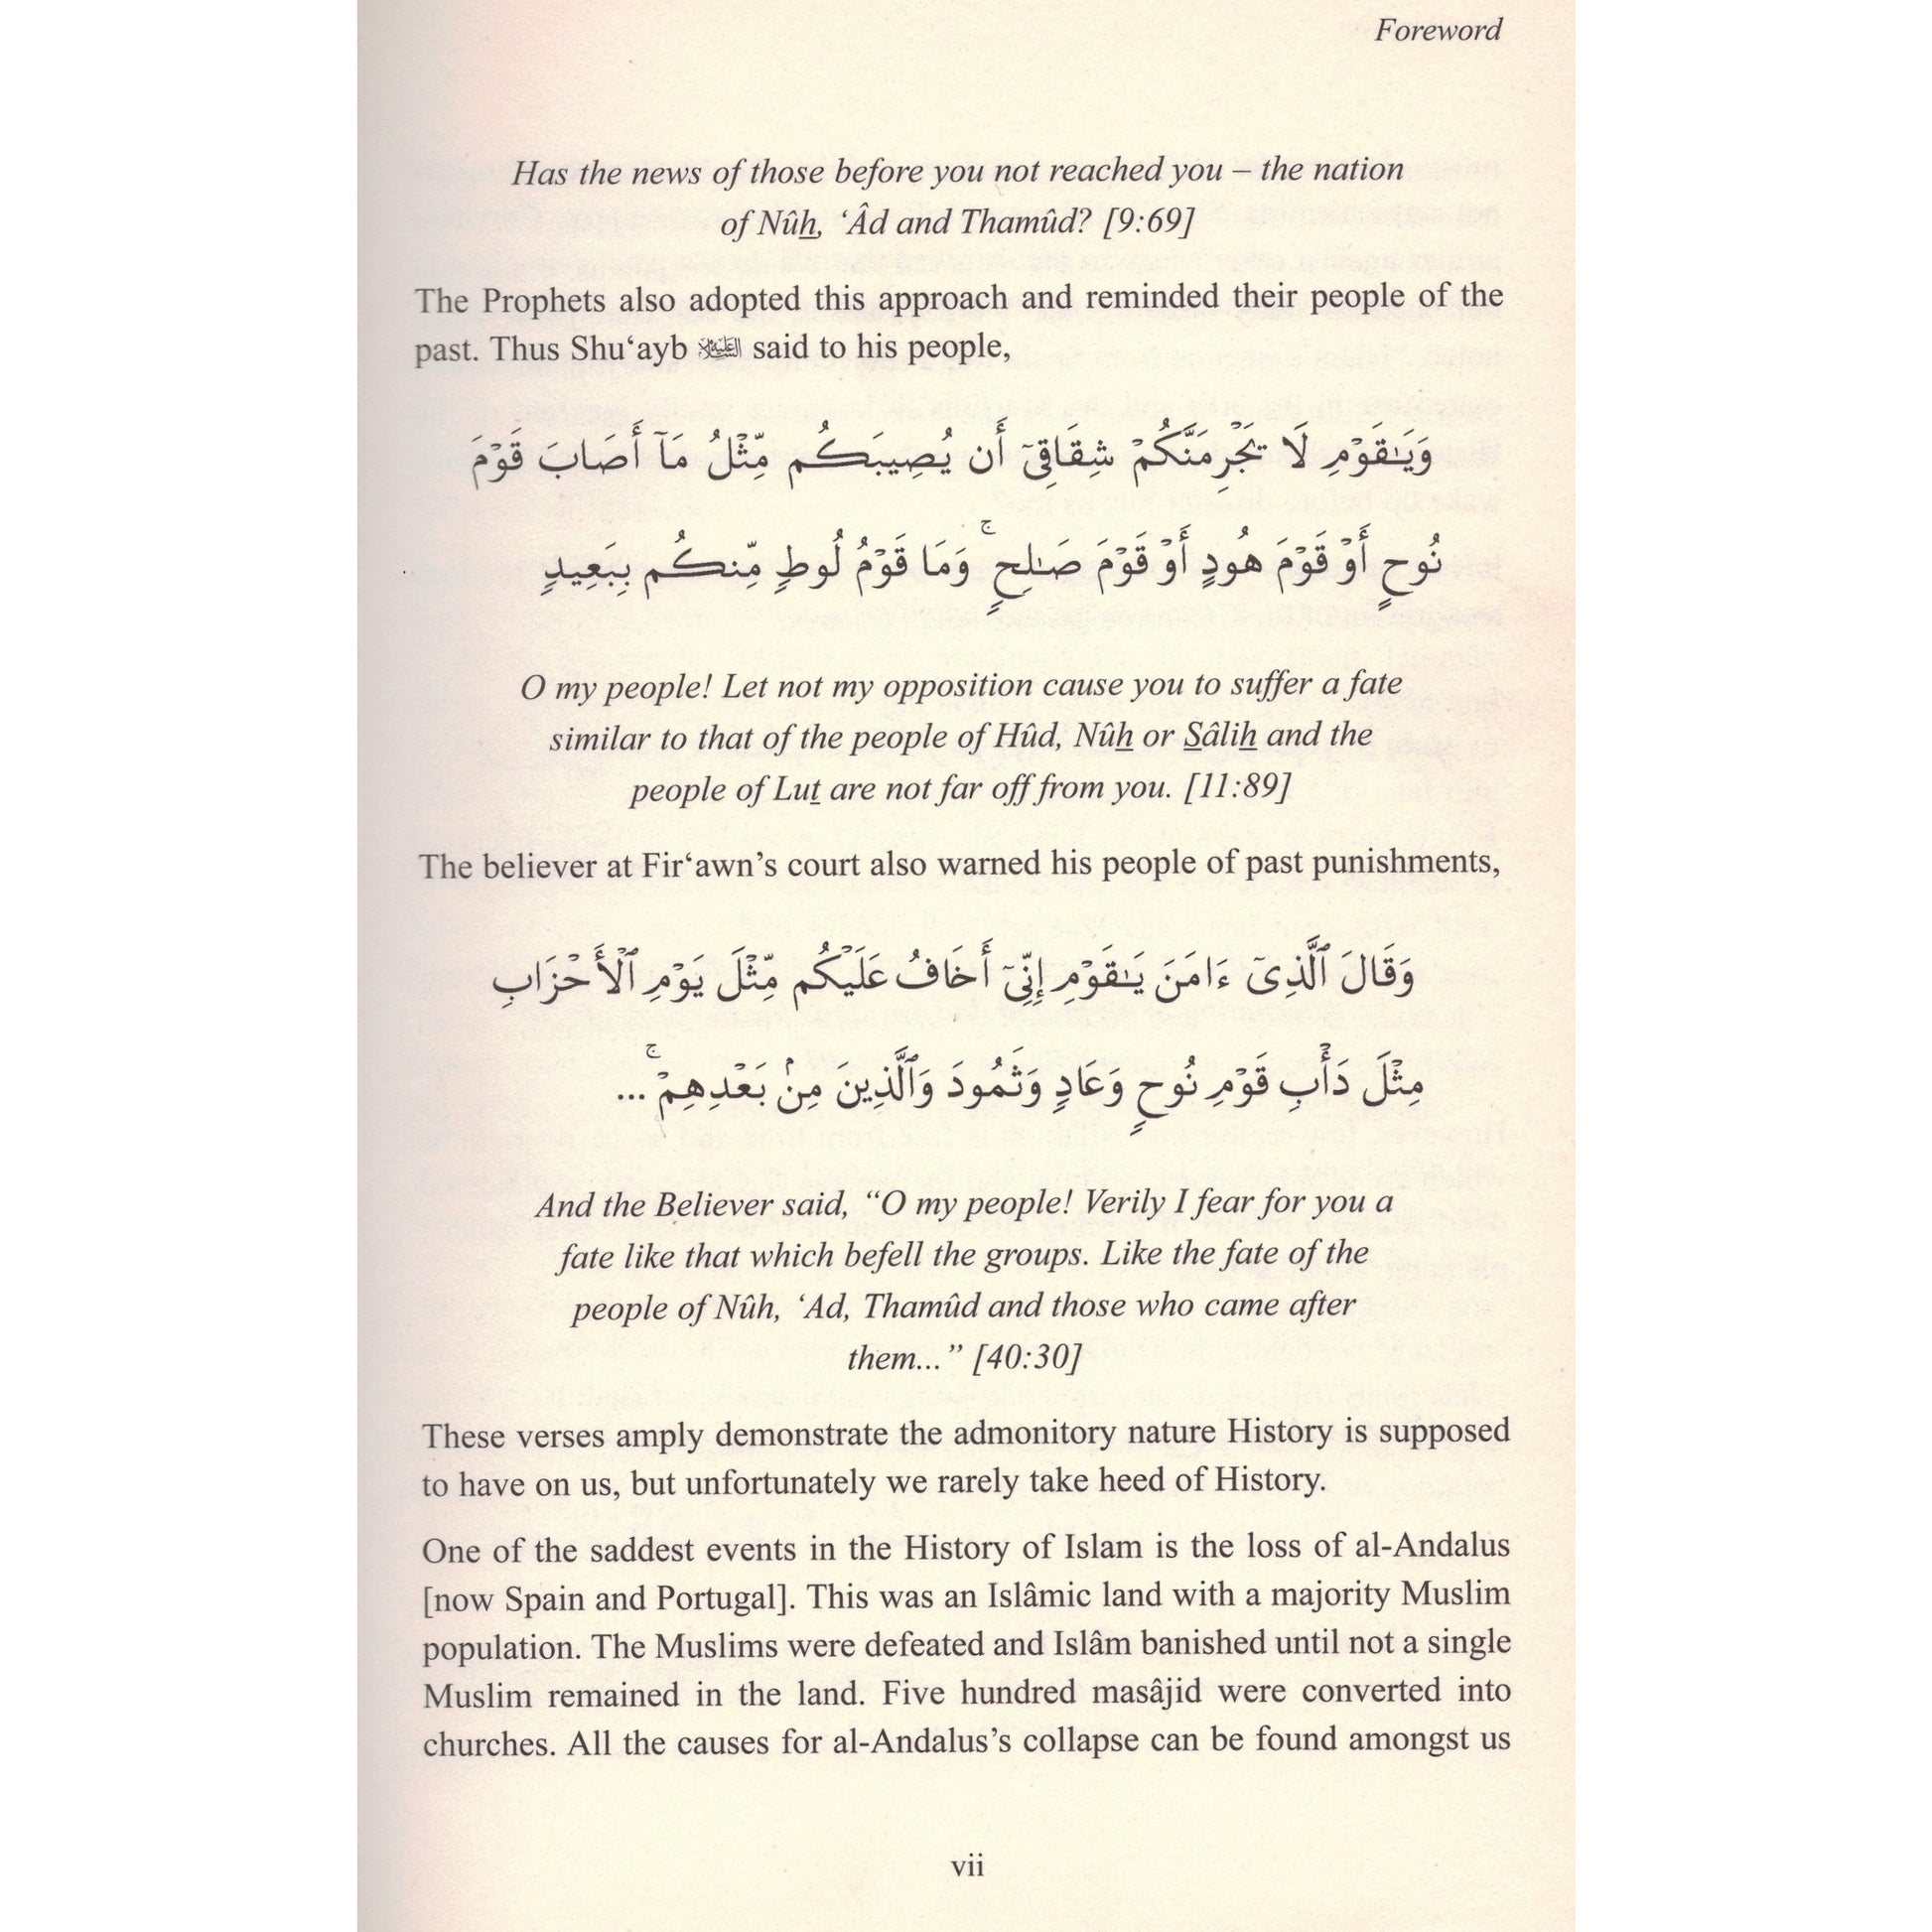 Foreword
Has the news of those before you not reached you – the nation
of Nûẖ, ‘Âd and Thamûd? [9:69]
The Prophets also adopted this approach and reminded their people of the
past. Thus Shu‘ayb عليه السلام said to his people,
وَيَـٰقَوْمِ لَا يَجْرِمَنَّكُمْ شِقَاقِىٓ أَن يُصِيبَكُم مِّثْلُ مَآ أَصَابَ قَوْمَ
نُوحٍ أَوْ قَوْمَ هُودٍ أَوْ قَوْمَ صَـٰلِحٍ ۚ وَمَا قَوْمُ لُوطٍ مِّنكُم بِبَعِيدٍ
O my people! Let not my opposition cause you to suffer a fate
similar to that of the people of Hûd, Nûẖ or S̲âliẖ and the
people of Luṯ are not far off from you. [11:89]
The believer at Fir‘awn’s court also warned his people of past punishments,
وَقَالَ ٱلَّذِىٓ ءَامَنَ يَـٰقَوْمِ إِنِّىٓ أَخَافُ عَلَيْكُم مِّثْلَ يَوْمِ ٱلْأَحْزَابِ
مِثْلَ دَأْبِ قَوْمِ نُوحٍ وَعَادٍ وَثَمُودَ وَٱلَّذِينَ مِنۢ بَعْدِهِمْ ۚ ...
And the Believer said, “O my people! Verily I fear for you a
fate like that which befell the groups. Like the fate of the
people of Nûh, ‘Ad, Thamûd and those who came after
them...” [40:30]
These verses amply demonstrate the admonitory nature History is supposed
to have on us, but unfortunately we rarely take heed of History.
One of the saddest events in the History of Islam is the loss of al-Andalus
[now Spain and Portugal]. This was an Islâmic land with a majority Muslim
population. The Muslims were defeated and Islâm banished until not a single
Muslim remained in the land. Five hundred masâjid were converted into
churches. All the causes for al-Andalus’s collapse can be found amongst us
vii